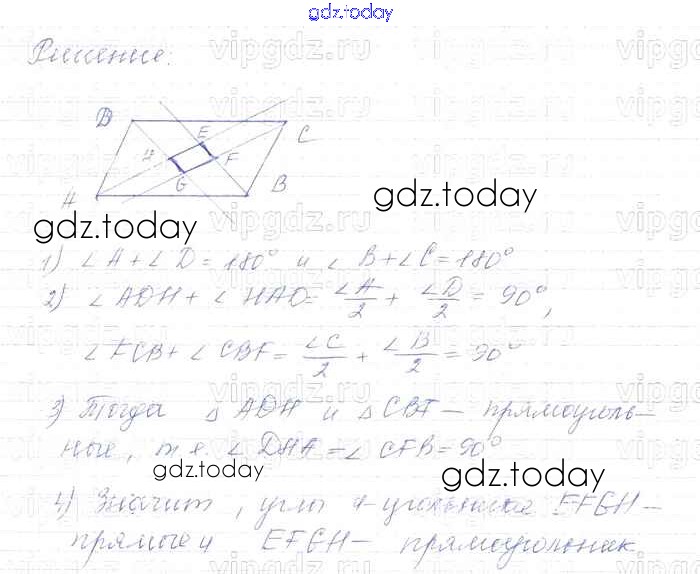 gdz.today
Решение:
D
E
C
H
F
G
A
B
gdz.today
gdz.today
1) ∠A+∠D=180° и ∠B+∠C=180°
2) ∠ADH+∠HAD=∠A/2+∠D/2=90°,
∠FCB+∠CBF=∠C/2+∠B/2=90°
3) Тогда △ADH и △CBF – прямоуголь-
ные, т.е. ∠DHA=∠CFB=90°
gdz.today
gdz.today
4) Значит, углы 4-угольника EFGH –
прямые и EFGH – прямоугольник